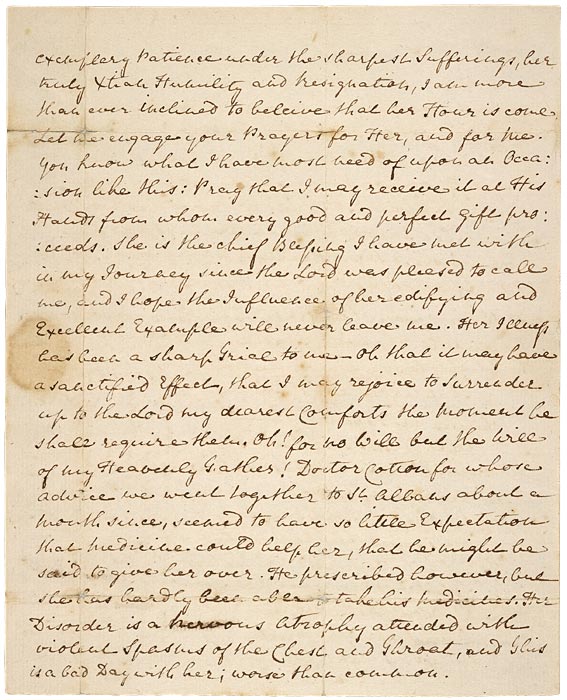 exemplery Patience under the sharpest Sufferings, her
truly Xtian Humility and Resignation, I am more
than ever inclined to beleive that her Hour is come.
Let me engage your Prayers for Her, and for me.
You know what I have most need of upon an Occa:
:sion like this: Pray that I may receive it at His
Hands from whom every good and perfect Gift pro:
:ceeds. She is the chief Blessing I have met with
in my Journey since the Lord was pleased to call
me, and I hope the Influence of her edifying and
Excellent Example will never leave me. Her Illness
has been a sharp Trial to me – Oh that it may have
a sanctified Effect, that I may rejoice to Surrender
up to the Lord my dearest Comforts the moment he
shall require them. Oh! for no Will but the Will
of my Heavenly Father! Doctor Cotton for whose
advice we went together to St. Albans about a
month since, seemed to have so little Expectation
that medicine could help her, that he might be
said to give her over. He prescribed however, but
she has hardly been able to take his medicines. Her
Disorder is a nervous Atrophy attended with
violent Spasms of the Chest and Throat, and This
is a bad Day with her; worse than common.